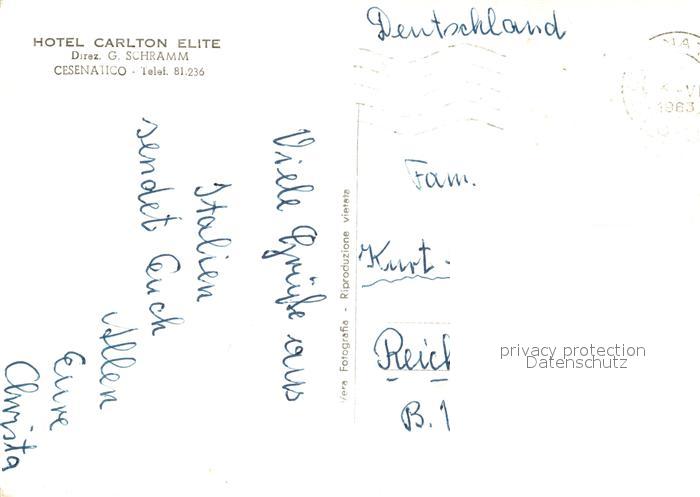 HOTEL CARLTON ELITE
Direz. G. SCHRAMM
CESENATICO - Telef. 81.236
Viele Grüße aus
Italien
sendet Euch
Allen
Eure
Christa
Vera Fotografia - Riproduzione vietata
Deutschland
1963
Fam.
Kurt
Reich
B. 1
privacy protection
Datenschutz